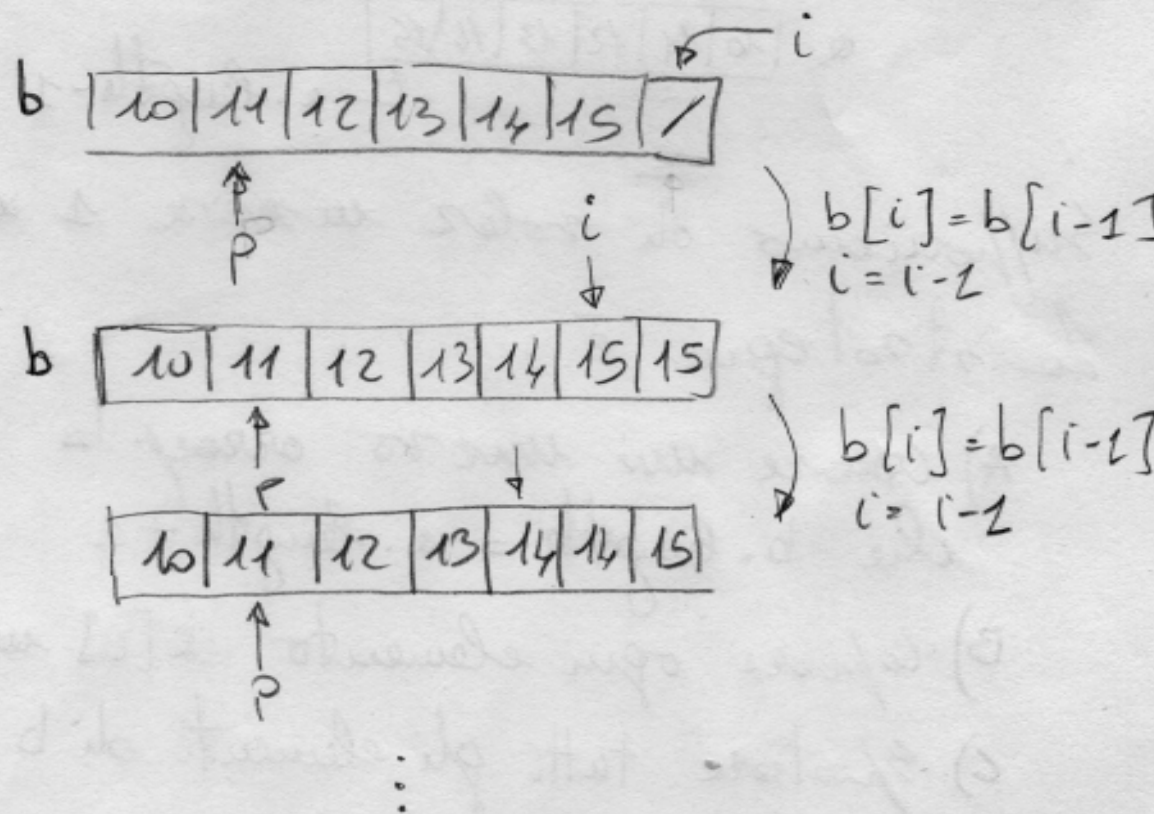 i
b 10 11 12 13 14 15 /
p
b[i]=b[i-1]
i=i-1
i
b 10 11 12 13 14 15 15
p
b[i]=b[i-1]
i=i-1
10 11 12 13 14 14 15
p
⋮